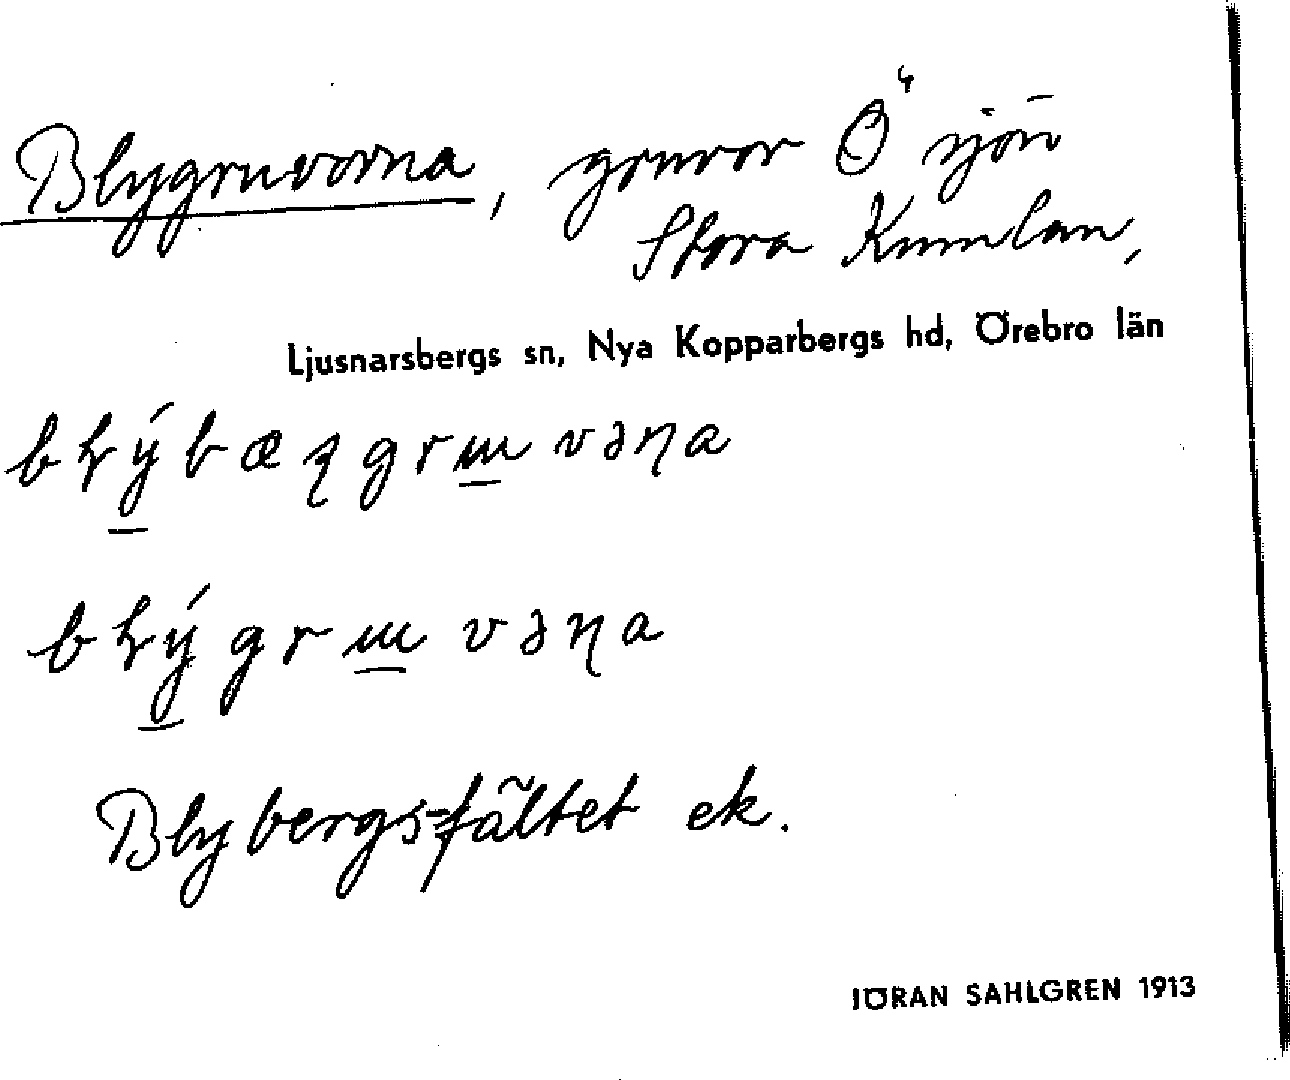 Blygruvorna, gruvor Ö sjön
Stora Kumlan,
Ljusnarsbergs sn, Nya Kopparbergs hd, Örebro län
Blybergsfältet ek.
JÖRAN SAHLGREN 1913